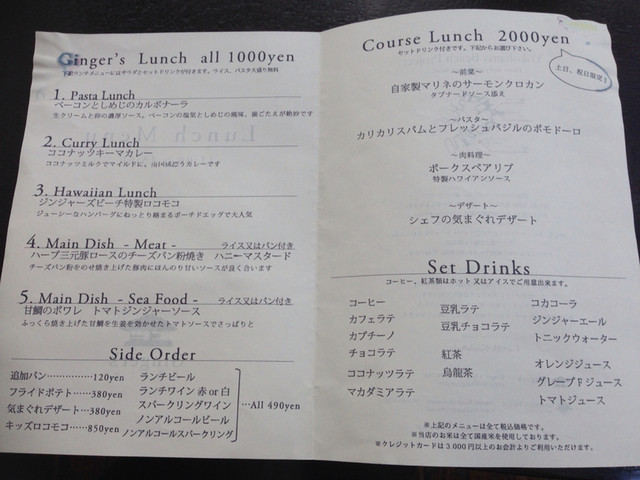 Ginger's Lunch all 1000yen
下記ランチメニューにはサラダとセットドリンクが付きます。ライス、パスタ大盛り無料
1. Pasta Lunch
ベーコンとしめじのカルボナーラ
生クリームと卵の濃厚ソース。ベーコンの塩気としめじの風味、歯ごたえが絶妙です
2. Curry Lunch
ココナッツキーマカレー
ココナッツミルクでマイルドに。南国風漂うカレーです
3. Hawaiian Lunch
ジンジャーズビーチ特製ロコモコ
ジューシーなハンバーグにねっとり絡まるポーチドエッグで大人気
4. Main Dish - Meat - ライス又はパン付き
ハーブ三元豚ロースのチーズパン粉焼き ハニーマスタード
チーズパン粉をのせ焼き上げた豚肉にほんのり甘いソースが良く合います
5. Main Dish - Sea Food - ライス又はパン付き
甘鯛のポワレ トマトジンジャーソース
ふっくら焼き上げた甘鯛を生姜を効かせたトマトソースでさっぱりと
Side Order
追加パン……………120yen
フライドポテト……380yen
気まぐれデザート…380yen
キッズロコモコ……850yen
ランチビール
ランチワイン 赤or白
スパークリングワイン
ノンアルコールビール
ノンアルコールスパークリング
…All 490yen
Course Lunch 2000yen
セットドリンク付きです。下記からお選び下さい。
土日、祝日限定!
～前菜～
自家製マリネのサーモンクロカン
タプナードソース添え
～パスタ～
カリカリスパムとフレッシュバジルのポモドーロ
～肉料理～
ポークスペアリブ
特製ハワイアンソース
～デザート～
シェフの気まぐれデザート
Set Drinks
コーヒー、紅茶類はホット又はアイスでご用意出来ます。
コーヒー
カフェラテ
カプチーノ
チョコラテ
ココナッツラテ
マカダミアラテ
豆乳ラテ
豆乳チョコラテ
紅茶
烏龍茶
コカコーラ
ジンジャーエール
トニックウォーター
オレンジジュース
グレープFジュース
トマトジュース
※上記のメニューは全て税込価格です。
※当店のお米は全て国産米を使用しております。
※クレジットカードは3,000円以上のお会計よりご利用いただけます。